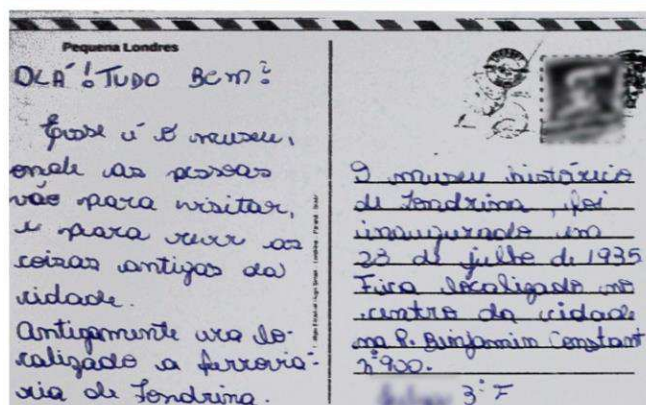 Pequena Londres
OLÁ! TUDO BEM?
Esse é o museu,
onde as pessoas
vão para visitar,
e para rever as
coizas antigas da
cidade.
Antigamente era lo-
calizado a ferroviá-
ria de Londrina.
O museu histórico
de Londrina, foi
inaugurado em
23 de julho de 1935
Fica localizado no
centro da cidade
na R. Benjamin Constant
nº 900.
3º F